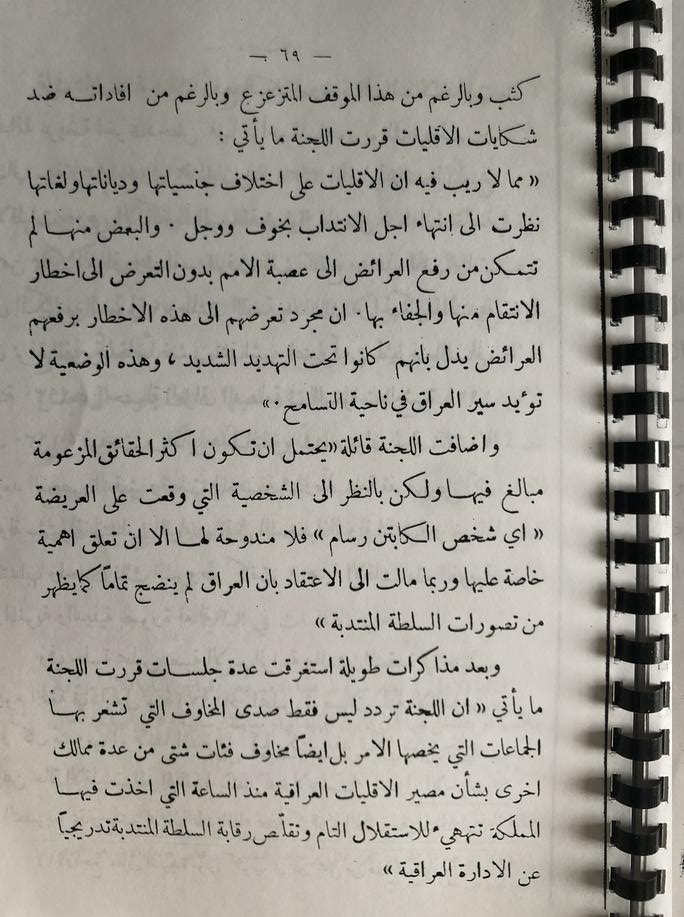 — ٦٩ —
كثب وبالرغم من هذا الموقف المتزعزع وبالرغم من افاداته ضد
شكايات الاقليات قررت اللجنة ما يأتي :
« مما لا ريب فيه ان الاقليات على اختلاف جنسياتها ودياناتها ولغاتها
نظرت الى انتهاء اجل الانتداب بخوف ووجل . والبعض منها لم
تتمكن من رفع العرائض الى عصبة الامم بدون التعرض الى اخطار
الانتقام منها والجفاء بها . ان مجرد تعرضهم الى هذه الاخطار برفعهم
العرائض يدل بانهم كانوا تحت التهديد الشديد ، وهذه الوضعية لا
تؤيد سير العراق في ناحية التسامح . »
واضافت اللجنة قائلة « يحتمل ان تكون اكثر الحقائق المزعومة
مبالغ فيها ولكن بالنظر الى الشخصية التي وقعت على العريضة
« اي شخص الكابتن رسام » فلا مندوحة لها الا ان تعلق اهمية
خاصة عليها وربما مالت الى الاعتقاد بان العراق لم ينضج تماماً كما يظهر
من تصورات السلطة المنتدبة »
وبعد مذاكرات طويلة استغرقت عدة جلسات قررت اللجنة
ما يأتي « ان اللجنة تردد ليس فقط صدى المخاوف التي تشعر بها
الجماعات التي يخصها الامر بل ايضاً مخاوف فئات شتى من عدة ممالك
اخرى بشأن مصير الاقليات العراقية منذ الساعة التي اخذت فيها
المملكة تتهيء للاستقلال التام وتقلّص رقابة السلطة المنتدبة تدريجياً
عن الادارة العراقية »